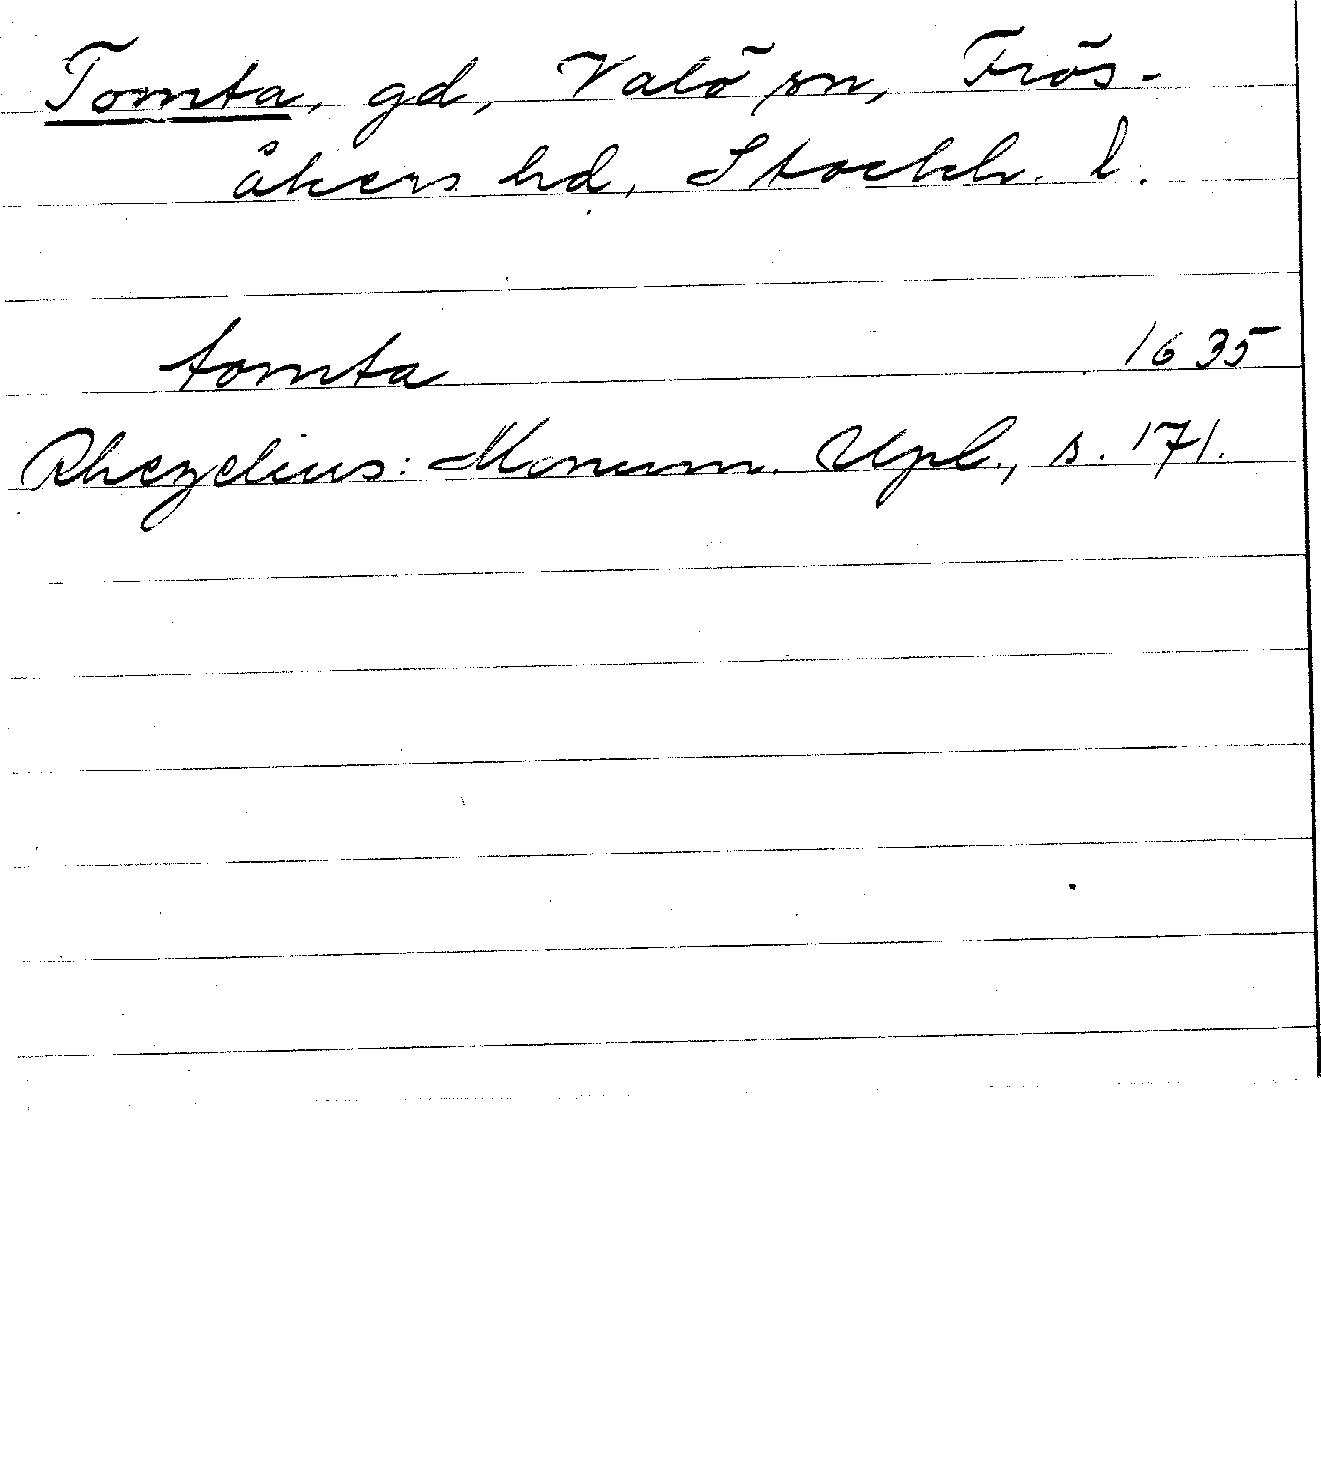 Tomta, gd, Valö sn, Frös-
åkers hd, Stockh. l.
tomta 1635
Rhezelius: Monum. Upl., s. 171.